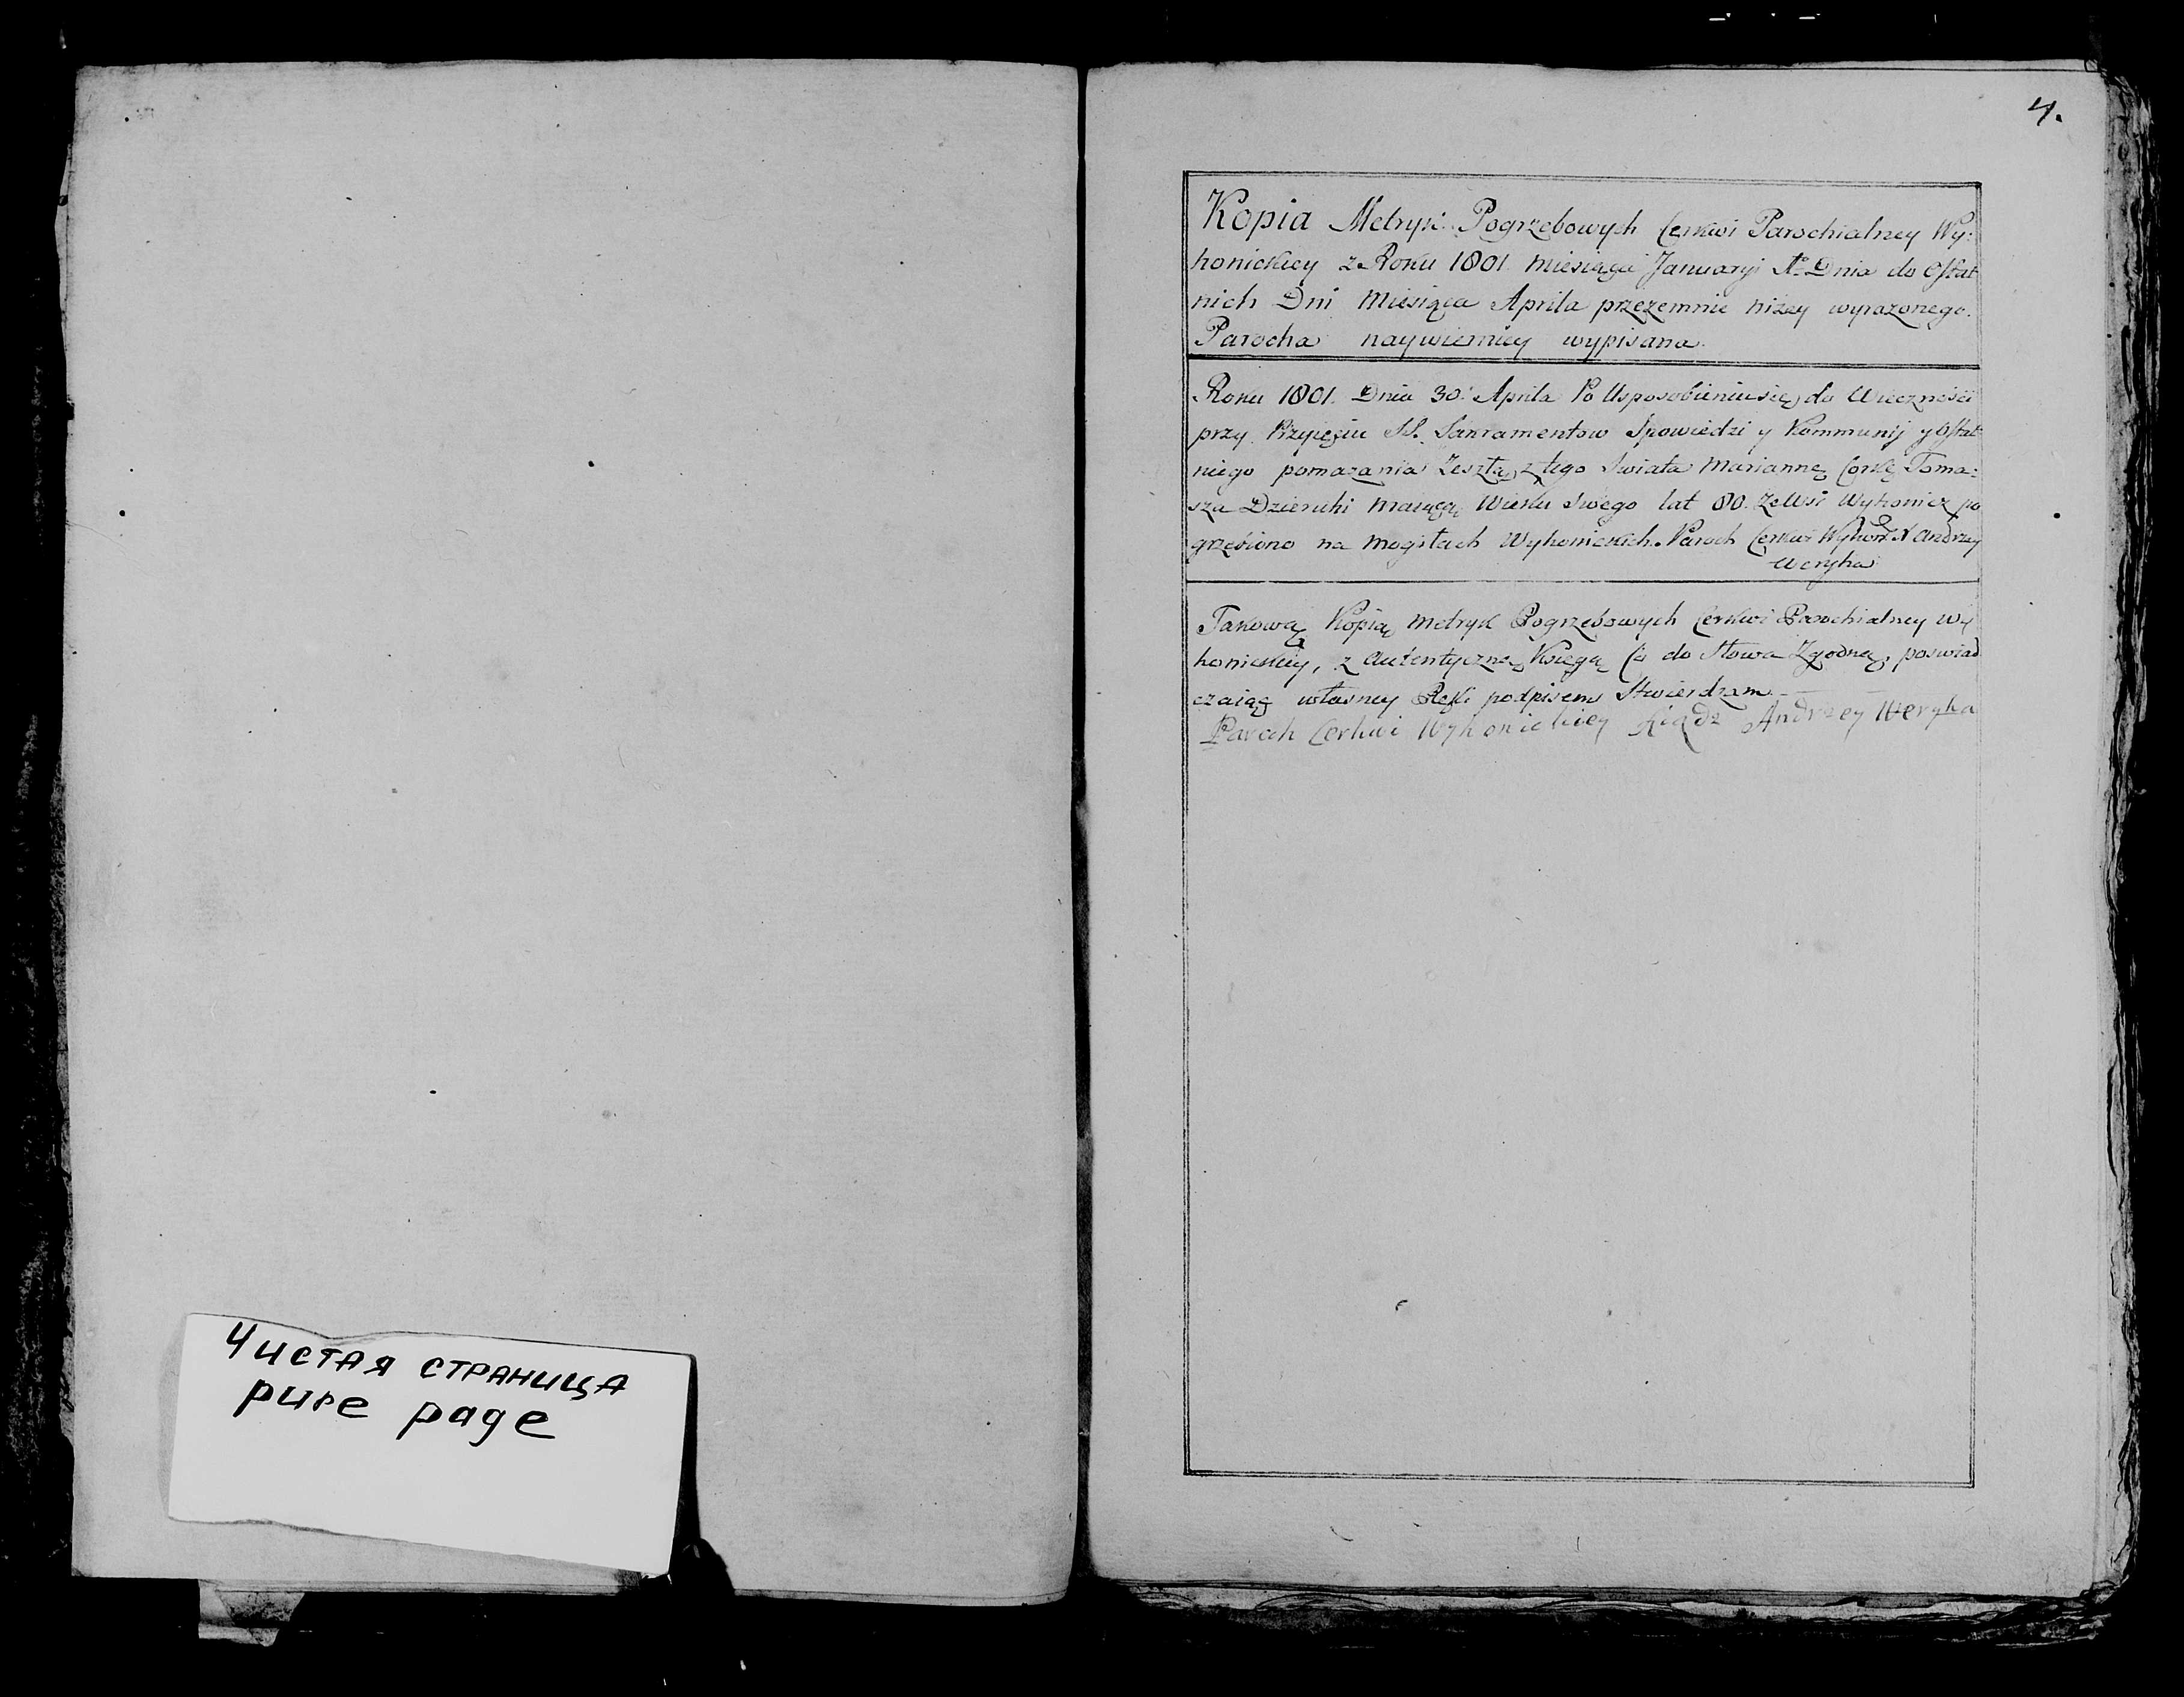 Чистая страница
pure page
4.
Kopia Metryk Pogrzebowych Cerkwi Parochialney Wy:
honickiey z Roku 1801 Miesiąca Januaryi 1º Dnia do Ostat
nich Dni Miesiąca Aprila przezemnie niżey wyrazonego
Parocha naywierniey wypisana.
Roku 1801. Dnia 30. Aprila Po Usposobieniu się do Wiecznośći
przy Przyięciu SS. Sakramentow Spowiedzi y Kommunij y Ostat
niego pomazania Zeszłą z tego Swiata Mariannę Corkę Toma:
sza Dzieruki maiącą Wieku Swego lat 80. Ze Wsi Wyhonicz po
grzebiono na Mogiłach Wyhonickich. Paroch Cerkwi Wyhon: X Andrzey
Weryha
Takową Kopią Metryk Pogrzebowych Cerkwi Parochialney Wy
honickiey, z Autentyczną Księgą Co do Słowa Zgodną, poswiad
czaiąc własney Ręki podpisem Stwierdzam
Paroch Cerkwi Wyhonickiey Xiądz Andrzey Weryha